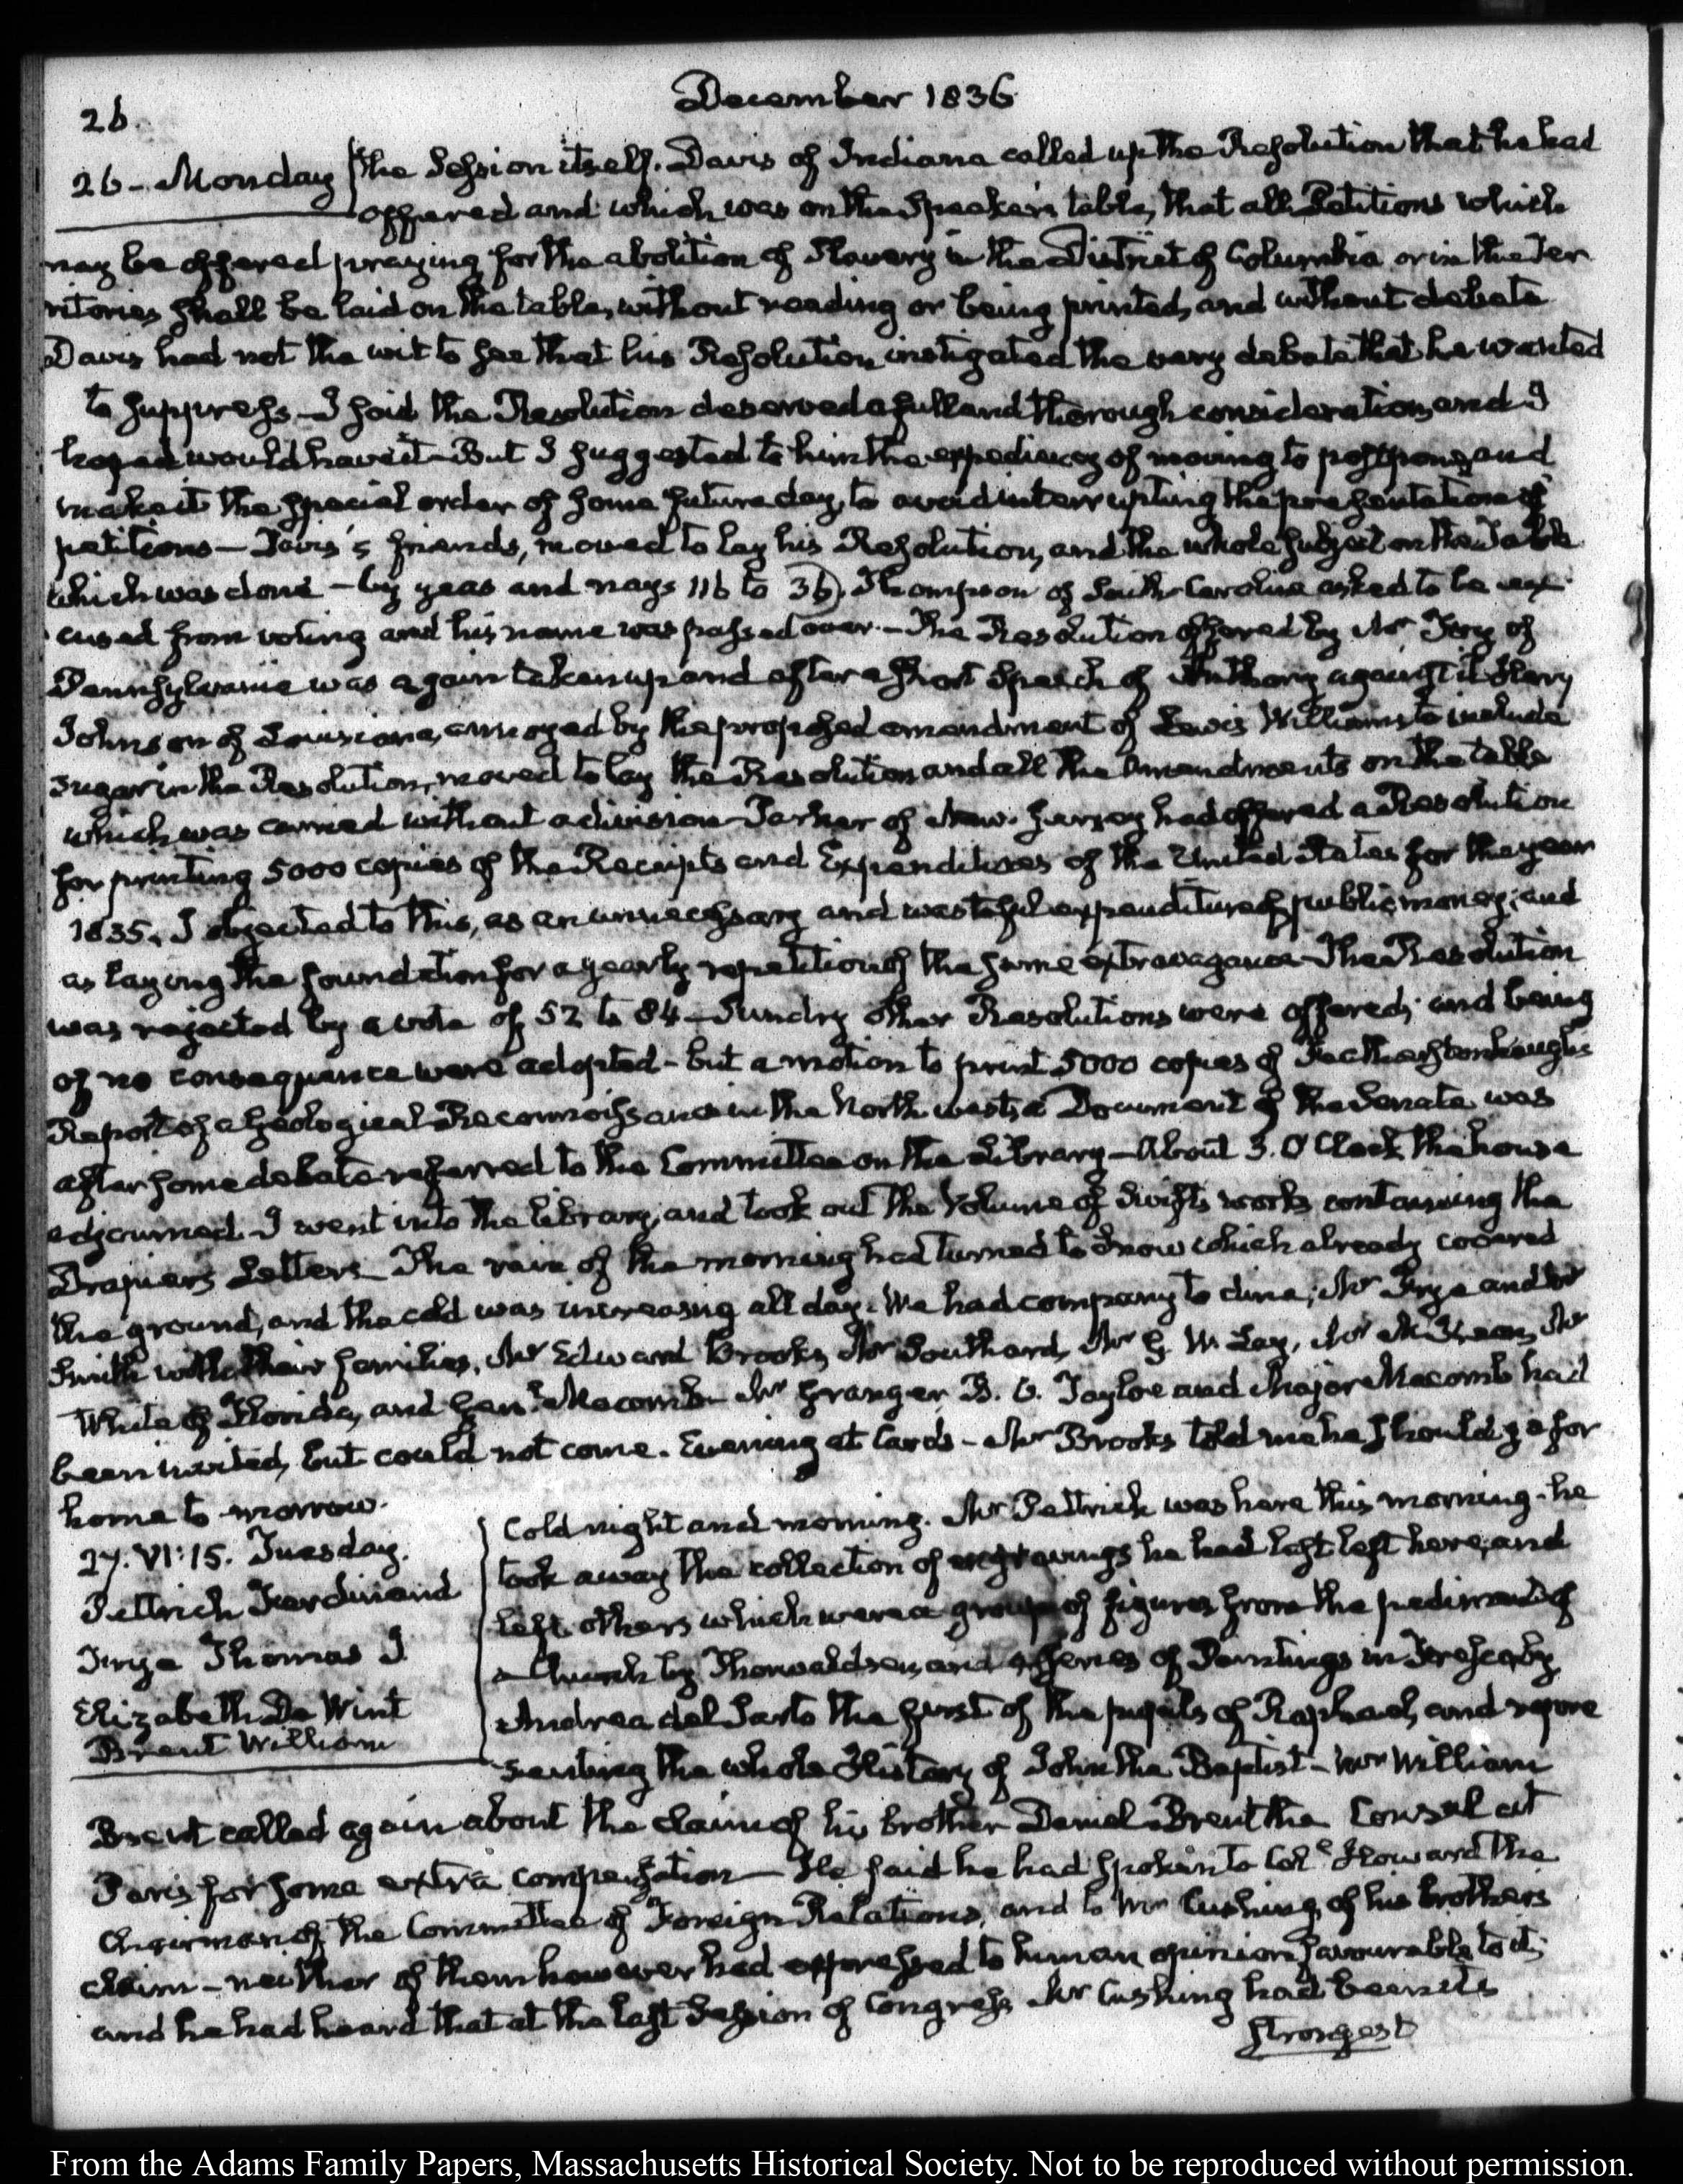 December 1836
26.
26 – Monday
the Session itself. Davis of Indiana called up the Resolution that he had
offered and which was on the Speaker's table, that all Petitions which
may be offered praying for the abolition of Slavery in the District of Columbia or in the Ter
ritories shall be laid on the table, without reading or being printed, and without debate
Davis had not the wit to see that his Resolution instigated the very debate that he wanted
to suppress – I said the Resolution deserved a full and thorough consideration, and I
hoped would have it – But I suggested to him the expediency of moving to postpone, and
make it the special order of some future day, to avoid interrupting the presentation of
petitions – Davis's friends, moved to lay his Resolution, and the whole subject on the Table
which was done – by yeas and nays 116 to 36. Thompson of South-Carolina asked to be ex
cused from voting and his name was passed over. – The Resolution offered by Mr Fry of
Pennsylvania was again taken up and after a short Speech of Anthony against it Henry
Johnson of Louisiana, annoyed by the proposed amendment of Lewis Williams to include
sugar in the Resolution, moved to lay the Resolution and all the Amendments on the table
which was carried without a division – Parker of New-Jersey had offered a Resolution
for printing 5000 copies of the Receipts and Expenditures of the United States for the year
1835. I objected to this, as an unnecessary and wasteful expenditure of public money; and
as laying the foundation for a yearly repetition of the same extravagance – The Resolution
was rejected by a vote of 52 to 84 – Sundry other Resolutions were offered; and being
of no consequence were adopted – but a motion to print 5000 copies of Featherstonhaugh's
Report of a Geological Reconnoissance in the North west, a Document of the Senate was
after some debate referred to the Committee on the Library – About 3. O'Clock the house
adjourned. I went into the library, and took out the Volume of Swift's works containing the
Drapiers Letters – The rain of the morning had turned to Snow which already covered
the ground, and the cold was increasing all day. We had company to dine; Mr Frye and Mr
Smith with their families, Mr Edward Brooks, Mr Southard, Mr G. W. Lay, Mr McKean, Mr
White of Florida, and Genl. Macomb – Mr Granger, B. O. Tayloe and Major Macomb had
been invited, but could not come. Evening at Cards – Mr Brooks told me he should go for
home to-morrow.
27. VI:15. Tuesday.
Pettrich Ferdinand
Frye Thomas J.
Elizabeth De Wint
Brent William
Cold night and morning. Mr Pettrich was here this morning – he
took away the collection of engravings he had left left here, and
left others which were a group of figures from the pediment of
a Church by Thorwaldsen, and a series of Paintings in Fresco, by
Andrea del Sarto the first of the pupils of Raphael, and repre
senting the whole History of John the Baptist – Mr William
Brent called again about the claim of his brother Daniel Brent the Consul at
Paris for some extra compensation – He said he had spoken to Col. Howard the
Chairman of the Committee of Foreign Relations, and to Mr Cushing of his brother's
claim – neither of them however had expressed to him an opinion favourable to it;
and he had heard that at the last Session of Congress Mr Cushing had been its
strongest
From the Adams Family Papers, Massachusetts Historical Society. Not to be reproduced without permission.